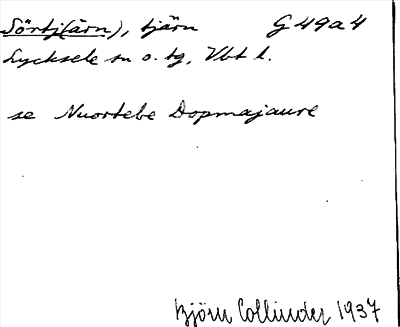 Sörtj(ärn), tjärn G 49a4
Lycksele sn o. tg, Vbt l.
se Nuortebe Dopmajaure
Björn Collinder 1937